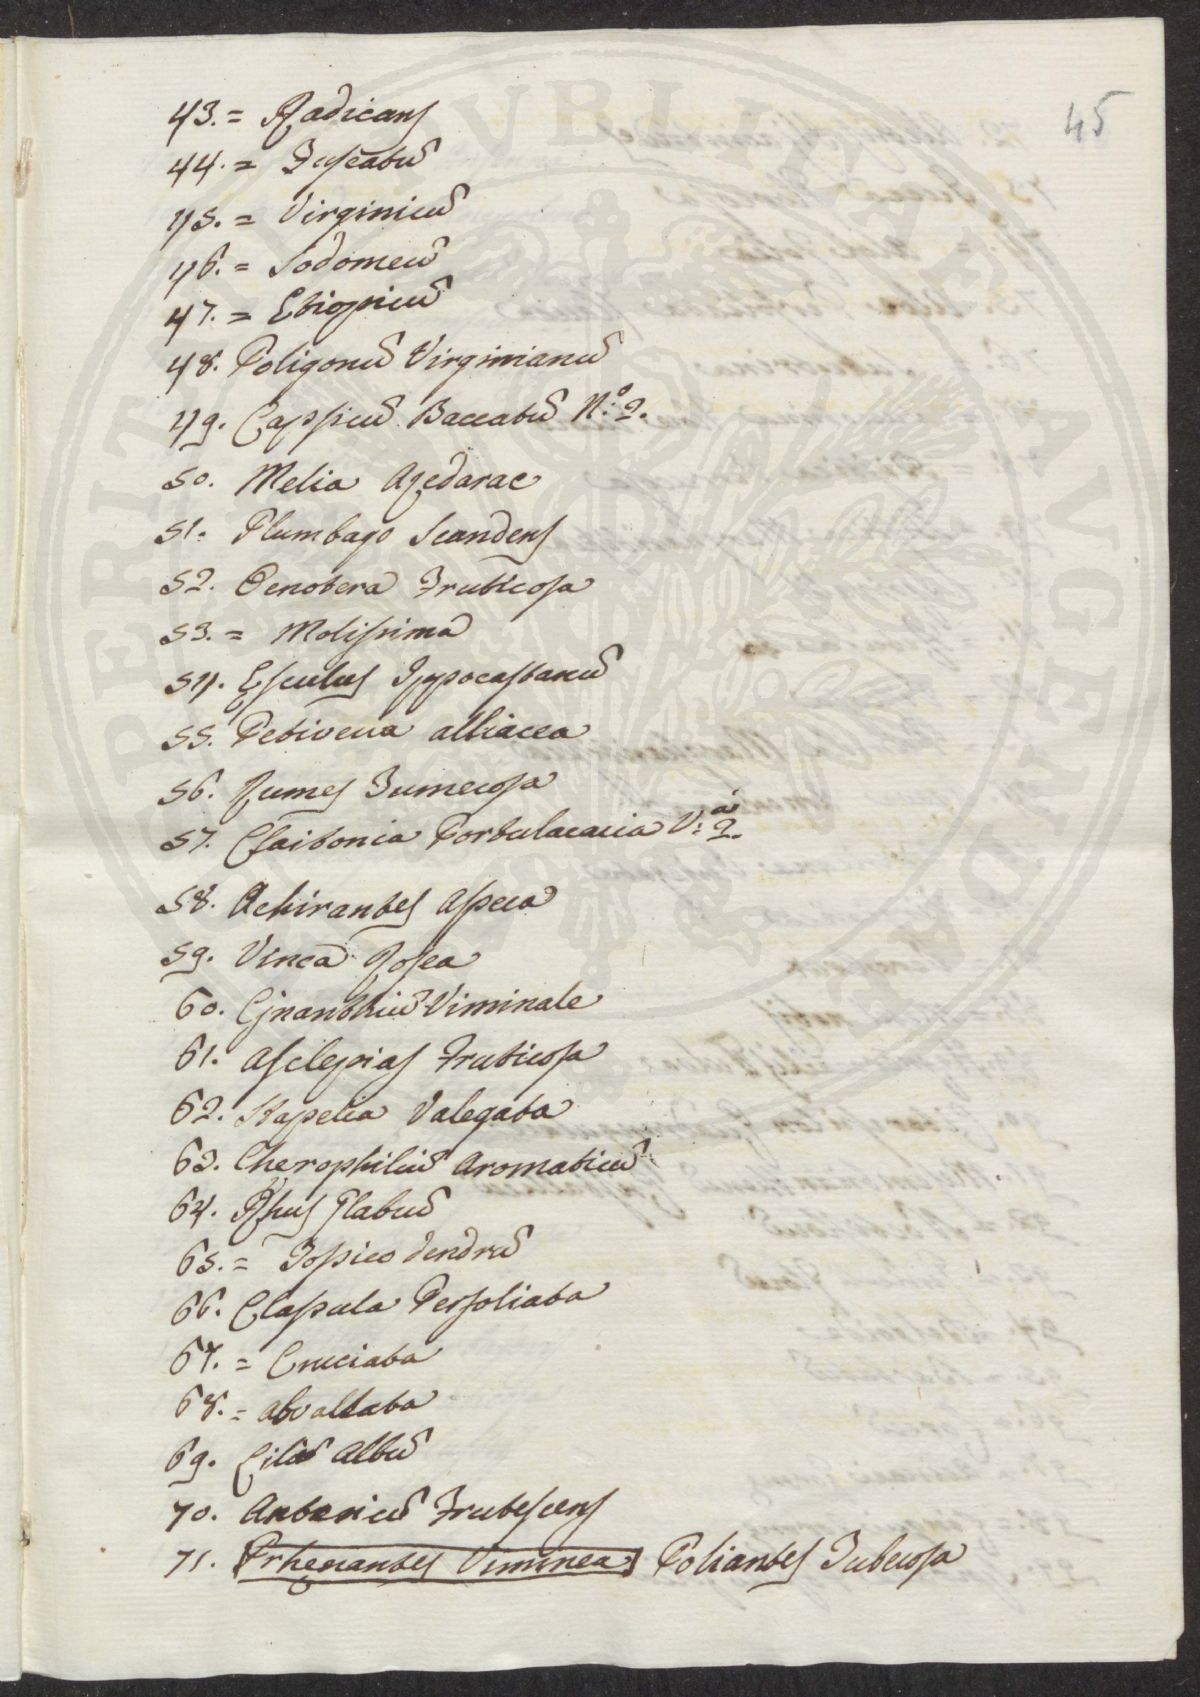 45
43. = Radicans
44. = Fuscatū
45. = Virginicū
46. = Sodomeū
47. = Etiopicū
48. Poligonū Virginianū
49. Capsicū Baccatū N.º 2.
50. Melia Azedarac
51. Plumbago Scandens
52. Oenotera Fruticosa
53. = Molissima
54. Esculus Ippocastanū
55. Petiveria alliacea
56. Rumes
57. Claitonia Portulacaria V:ª 2.
58. Achirantes Aspera
59. Vinca Rosea
60. Cjnanthiū Viminale
61. Asclepias Fruticosa
62. Stapelia Valegata
63. Cherophiliū Aromaticū
64. Rhus Glabrū
65. = Tossico dendrū
66. Clasula Perfoliata
67. = Cruciata
68. =
69. albū
70. Antericū Frutescens
71. Prhenantes Viminea Poliantes Tuberosa
PERITIAE PVBLICE AVGENDAE